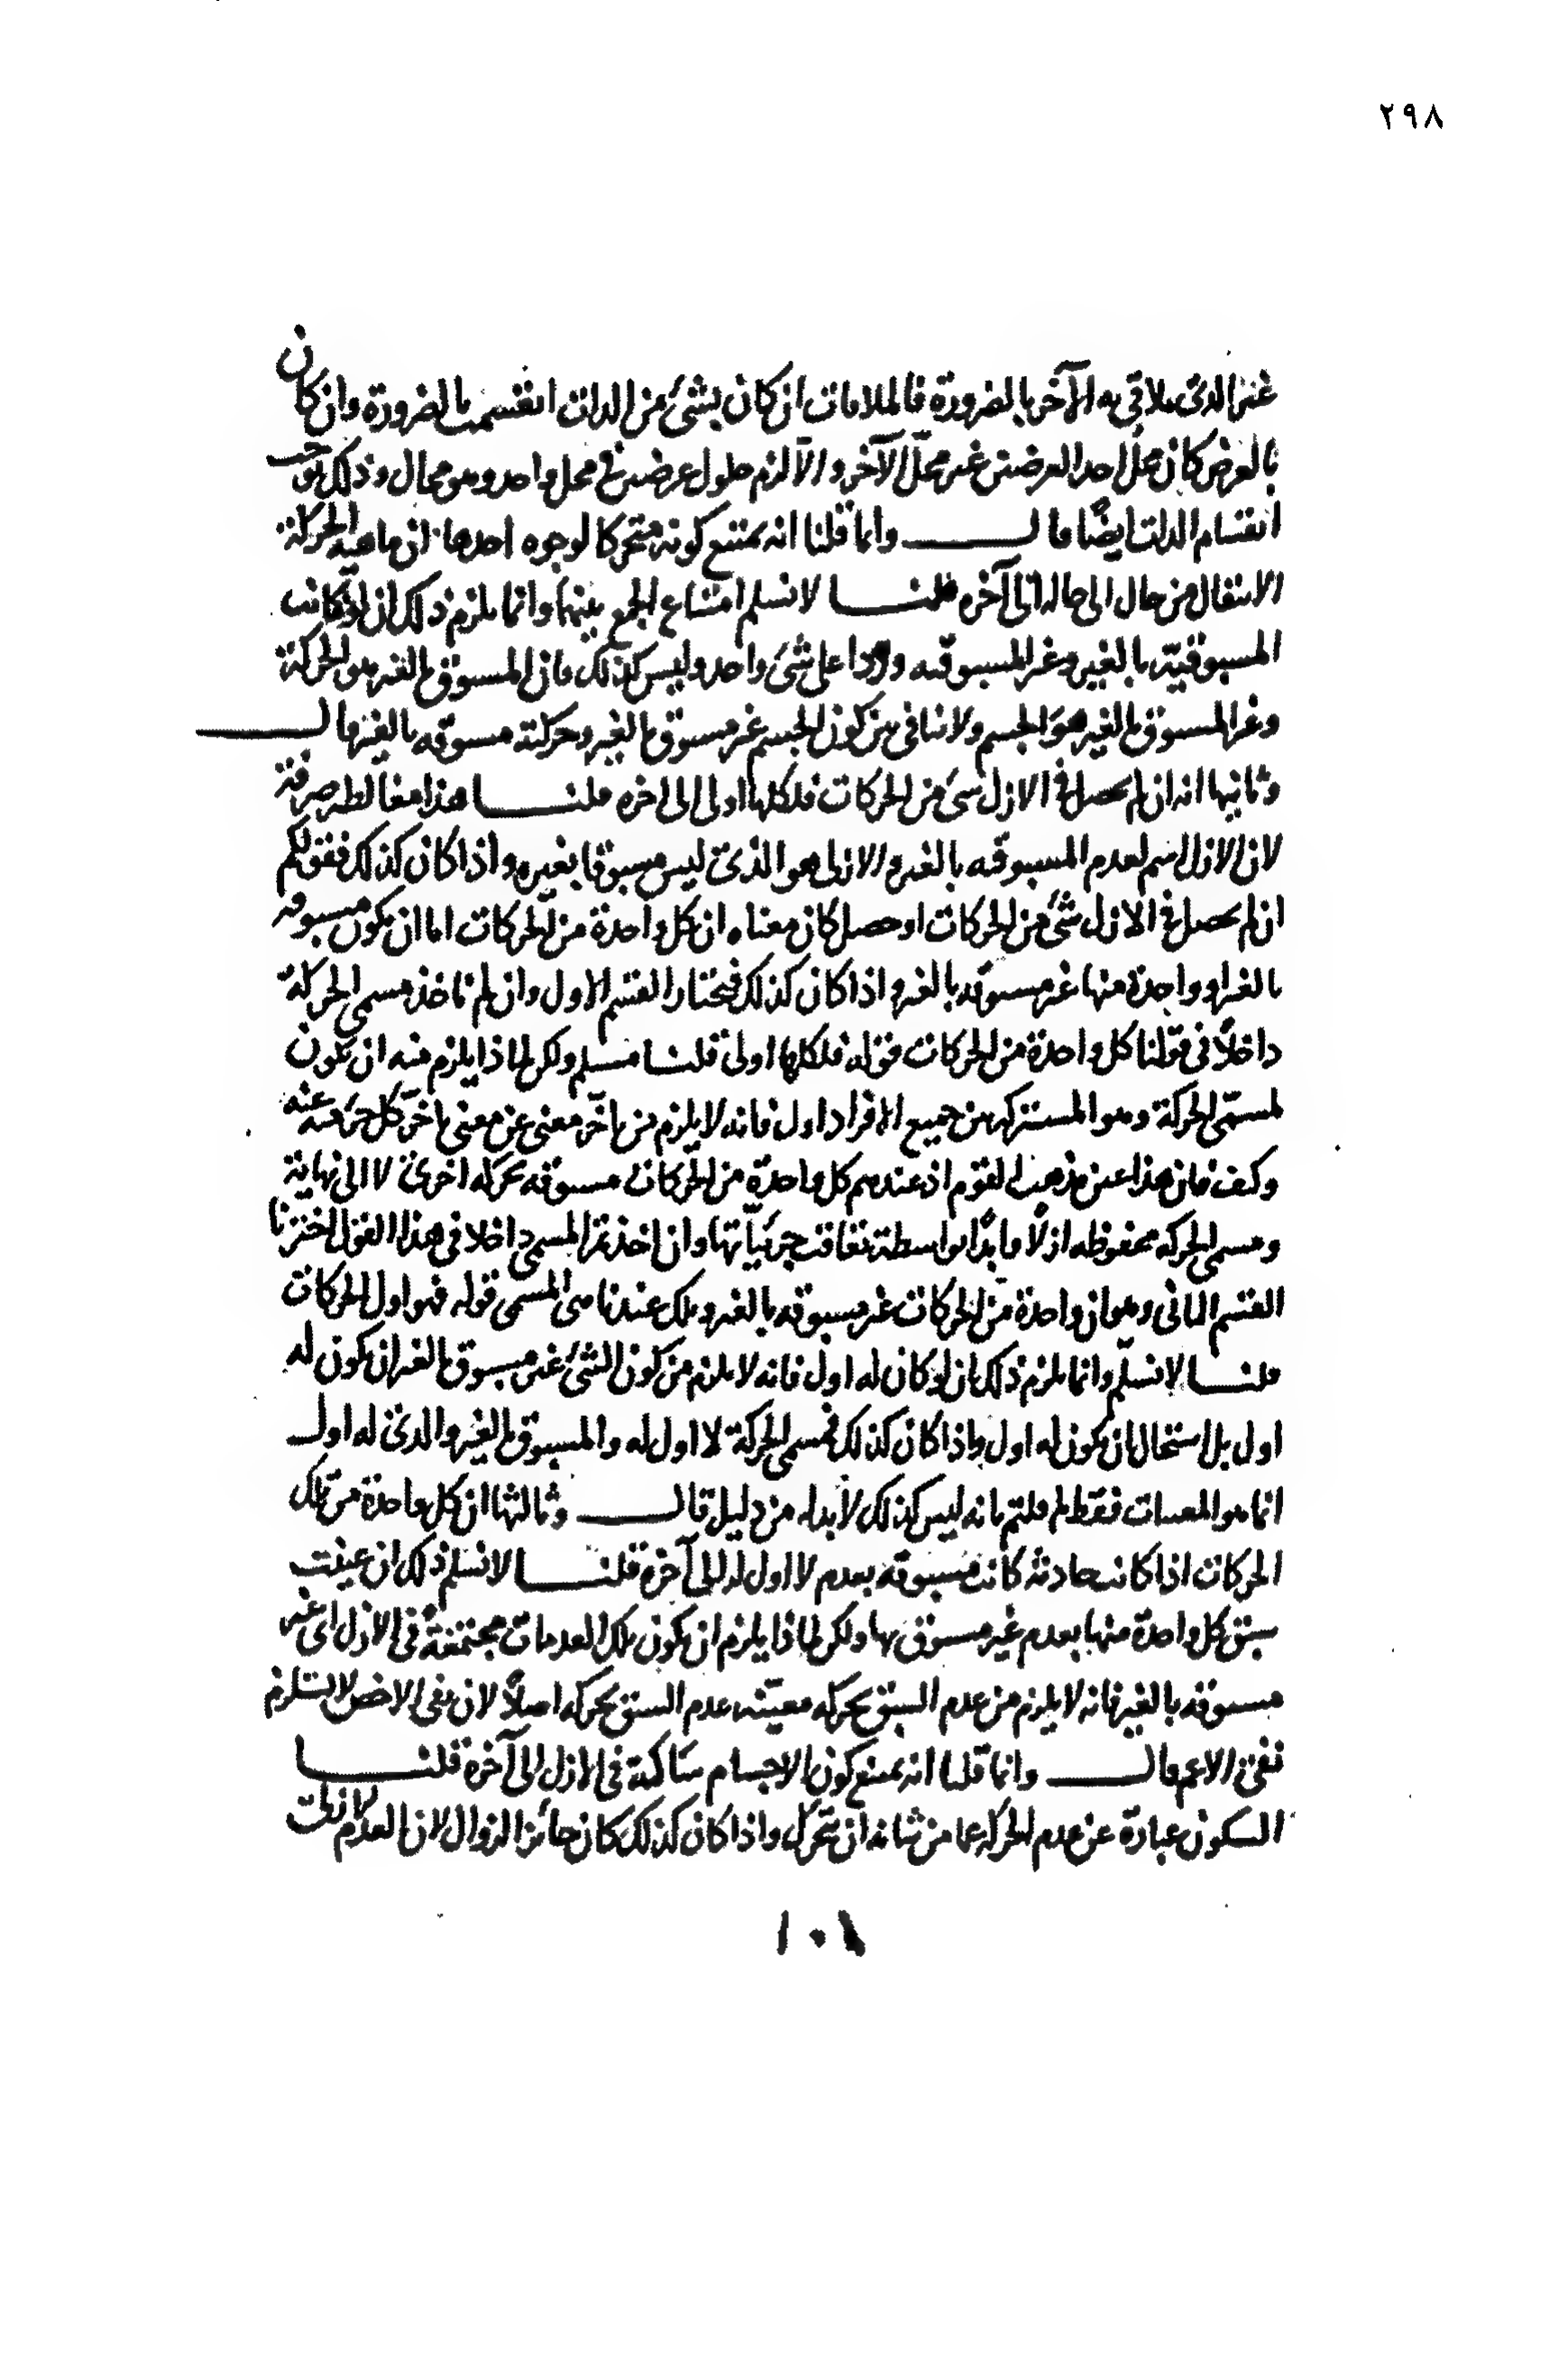 ٢٩٨
غير الذى يلاقى به الآخر بالضرورة فالملاقات ان كان بشئ من الذات انقسمت بالضرورة وان كان
بالعرض كان محلّ احد العرضين غير محلّ الآخر والّا لزم حلول عرضين فى محل واحد وهو محال وذلك يوجب
انقسام الذات ايضًا قال وانما قلنا انه يمتنع كونه متحركا لوجوه احدها ان ماهية الحركة
الانتقال من حال الى حالة الى آخره قلنا لا نسلم امتناع الجمع بينهما وانما يلزم ذلك ان لو كانت
المسبوقية بالغير وغير المسبوقيه وردا على شئ واحد وليس كذلك فان المسبوق بالغير هو الحركة
وغير المسبوق بالغير هو الجسم ولا تنافى بين كون الجسم غير مسبوق بالغير وحركته مسبوقه بالغير قال
وثانيها انه ان لم يحصل فى الازل شئ من الحركات فلكلها اولى الى اخره قلنا هذا مغالطه صرفة
لان الازل اسم لعدم المسبوقيه بالغير والازلى هو الذى ليس مسبوقا بغيره واذا كان كذلك فقولكم
ان لم يحصل فى الازل شئ من الحركات او حصل كان معناه ان كل واحدة من الحركات اما ان يكون مسبوقه
بالغير او واحدة منها غير مسبوقه بالغير واذا كان كذلك فنختار القسم الاول وان لم ناخذ مسمى الحركة
داخلاً فى قولنا كل واحدة من الحركات قوله فلكلها اولى قلنا مسلم ولكن لماذا يلزم منه ان يكون
لمسمّى الحركة وهو المشترك بين جميع الافراد اول فانه لا يلزم من تاخّر معنى عن معنى تاخّر كل جزء منه عنه
وكيف فان هذا عين مذهب القوم اذ عندهم كل واحدة من الحركات مسبوقه بحركه اخرى لا الى نهاية
ومسمى الحركه محفوظه ازلاً وابدًا بواسطة تعاقب جزئياتها وان اخذتم المسمى داخلا فى هذا القول اخترنا
القسم الثانى وهو ان واحدة من الحركات غير مسبوقه بالغير وتلك عندنا هى المسمى قوله فهو اول الحركات
قلنا لا نسلم وانما يلزم ذلك ان لو كان له اول فانه لا يلزم من كون الشئ غير مسبوق بالغير ان يكون له
اول بل استحال ان يكون له اول واذا كان كذلك فمسمى الحركة لا اول له والمسبوق بالغير والذى له اول
انما هو المعينات فقط لم قلتم بانه ليس كذلك لا بد له من دليل قال وثالثها ان كل واحدة من تلك
الحركات اذا كانت حادثه كانت مسبوقه بعدم لا اول له الى آخره قلنا لا نسلم ذلك ان عينت
سبق كل واحدة منها بعدم غير مسبوق بها ولكن لماذا يلزم ان يكون تلك العدمات مجتمعة فى الازل اى غير
مسبوقه بالغير فانه لا يلزم من عدم السبق بحركه معينه عدم السبق بحركه اصلاً لان نفى الاخص لا يستلزم
نفى الاعم قال وانما قلنا انه يمتنع كون الاجسام ساكنة فى الازل الى آخره قلنا
السكون عبارة عن عدم الحركه عما من شانه ان يتحرك واذا كان كذلك كان جائز الزوال لان العدم
١٠١